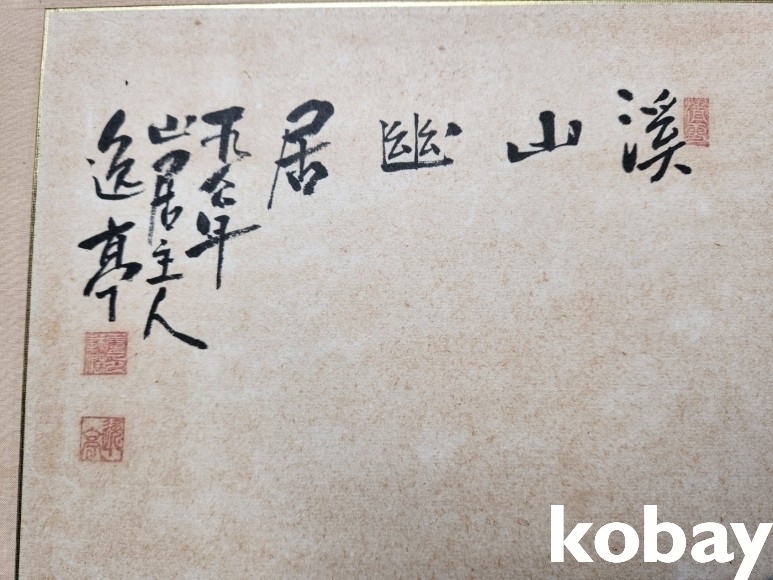 溪山幽居
年
山居主人
逸亭
kobay